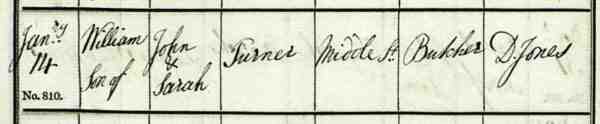 Jany
14
No. 810.
William
Son of
John
&
Sarah
Turner
Middle St.
Butcher
D. Jones